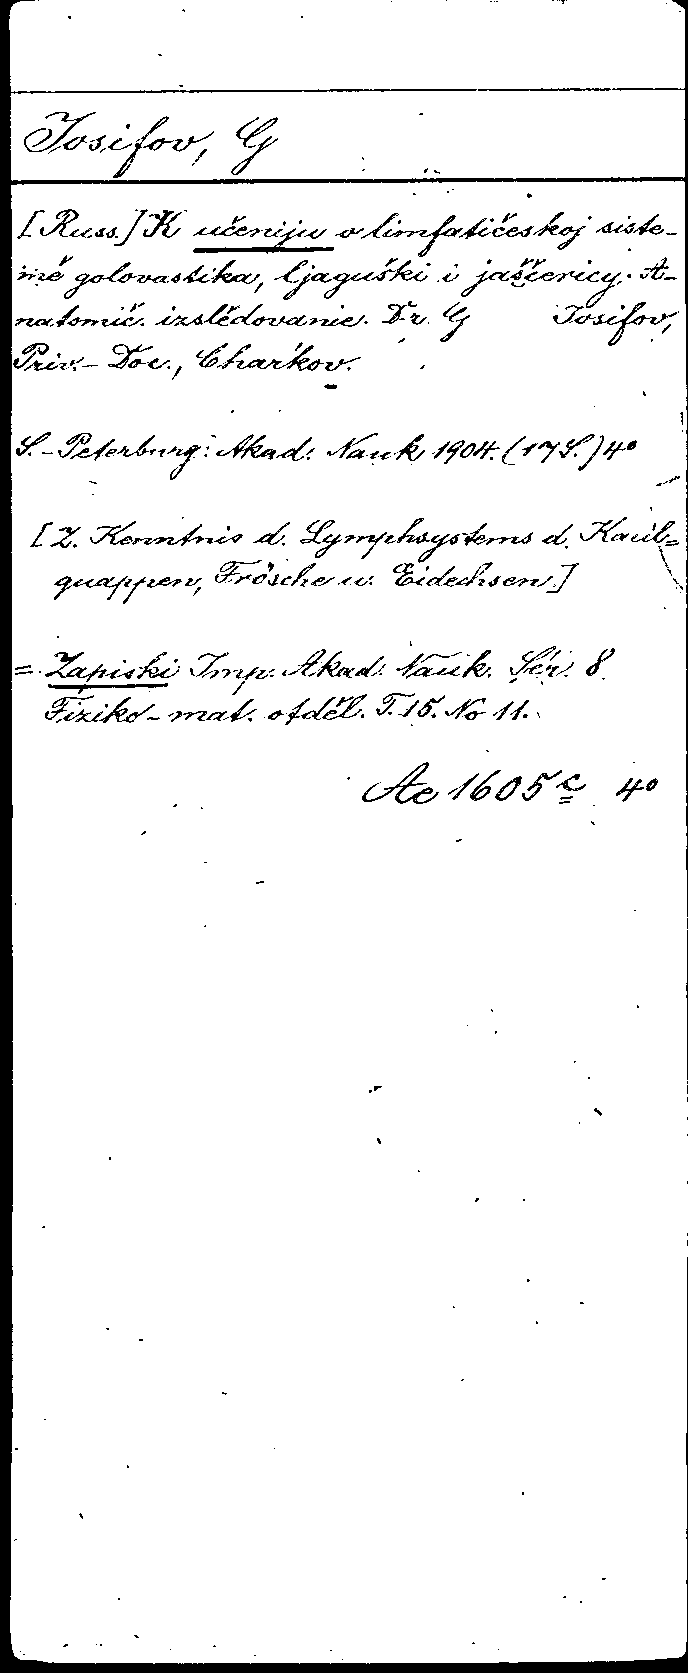 Iosifov, G
[Russ.] K učeniju o limfatičeskoj siste-
mě golovastika, ljaguški i jaščericy. A-
natomič. izslědovanie. Dr. G Iosifov,
Priv.-Doc., Char'kov.
S.-Peterburg: Akad. Nauk 1904. (17 S.) 4°
[Z. Kenntnis d. Lymphsystems d. Kaul=
quappen, Frösche u. Eidechsen.]
= Zapiski Imp. Akad. Nauk. Sér. 8.
Fiziko-mat. otděl. T. 15. No 11.
Ac 1605 c 4°